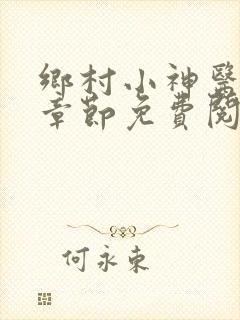 鄉村小神醫
章節免費閱
何永東